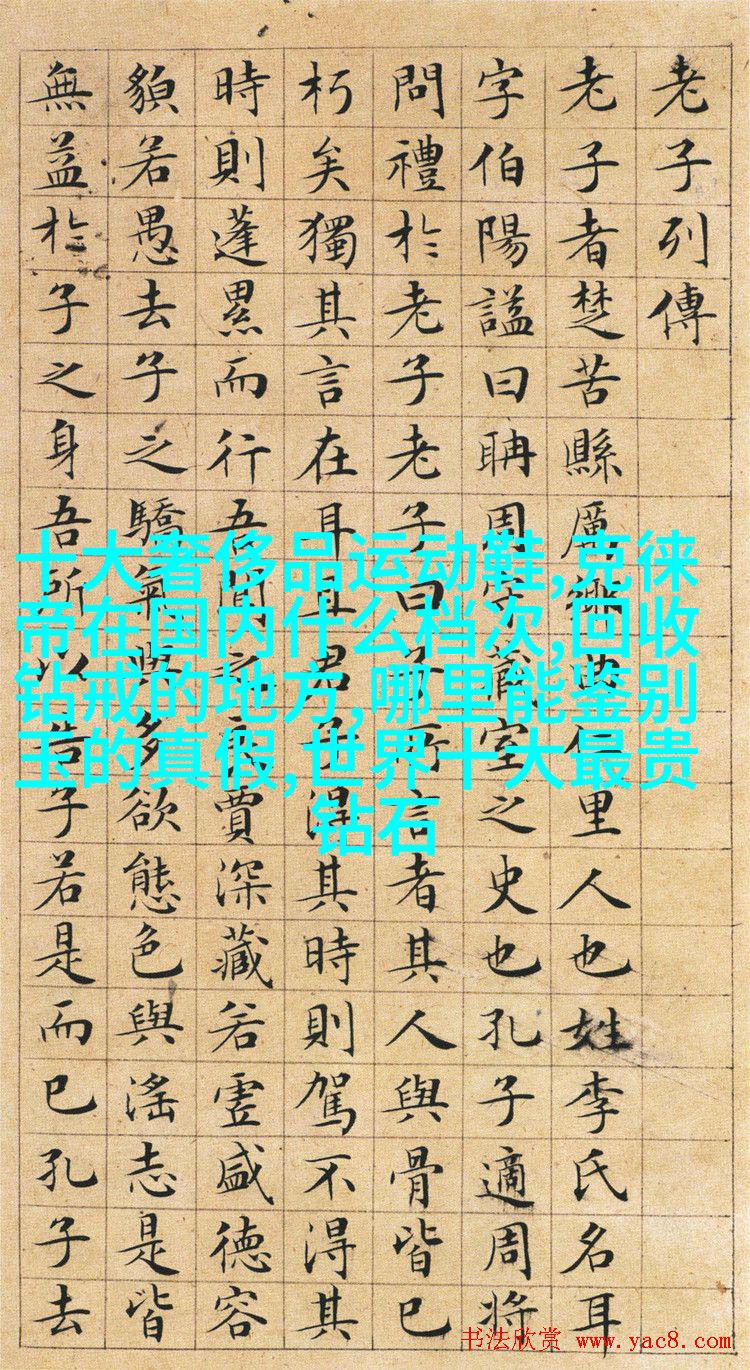 老子列傳
老子者楚苦縣厲鄉曲仁里人也姓李氏名耳
字伯陽謚曰聃周守藏室之史也孔子適周將
問禮於老子老子曰子所言者其人與骨皆已
朽矣獨其言在耳且君子得其時則駕不得其
時則蓬累而行吾聞之良賈深藏若虛盛德容
貌若愚去子之驕氣與多欲態色與淫志是皆
無益於子之身吾所以告子若是而已孔子去
十大奢侈品运动鞋,克徕
帝在国内什么档次,回收
钻戒的地方,哪里能鉴别
玉的真假,世界十大最贵
钻石
书法欣赏 www.yac8.com